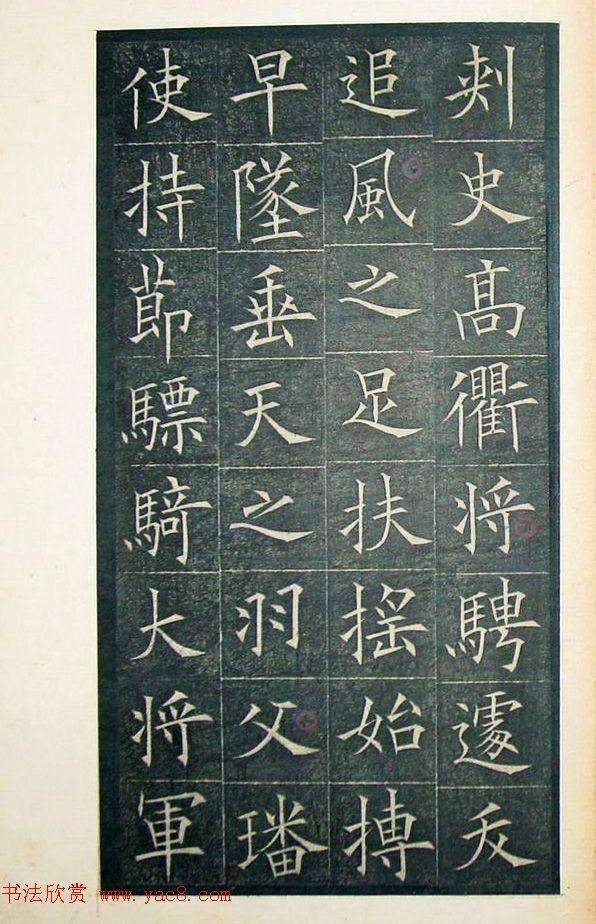 刾史髙衢将騁遽夭
追風之足扶摇始搏
早墜垂天之羽父璠
使持莭驃騎大将軍
书法欣赏 www.yac8.com